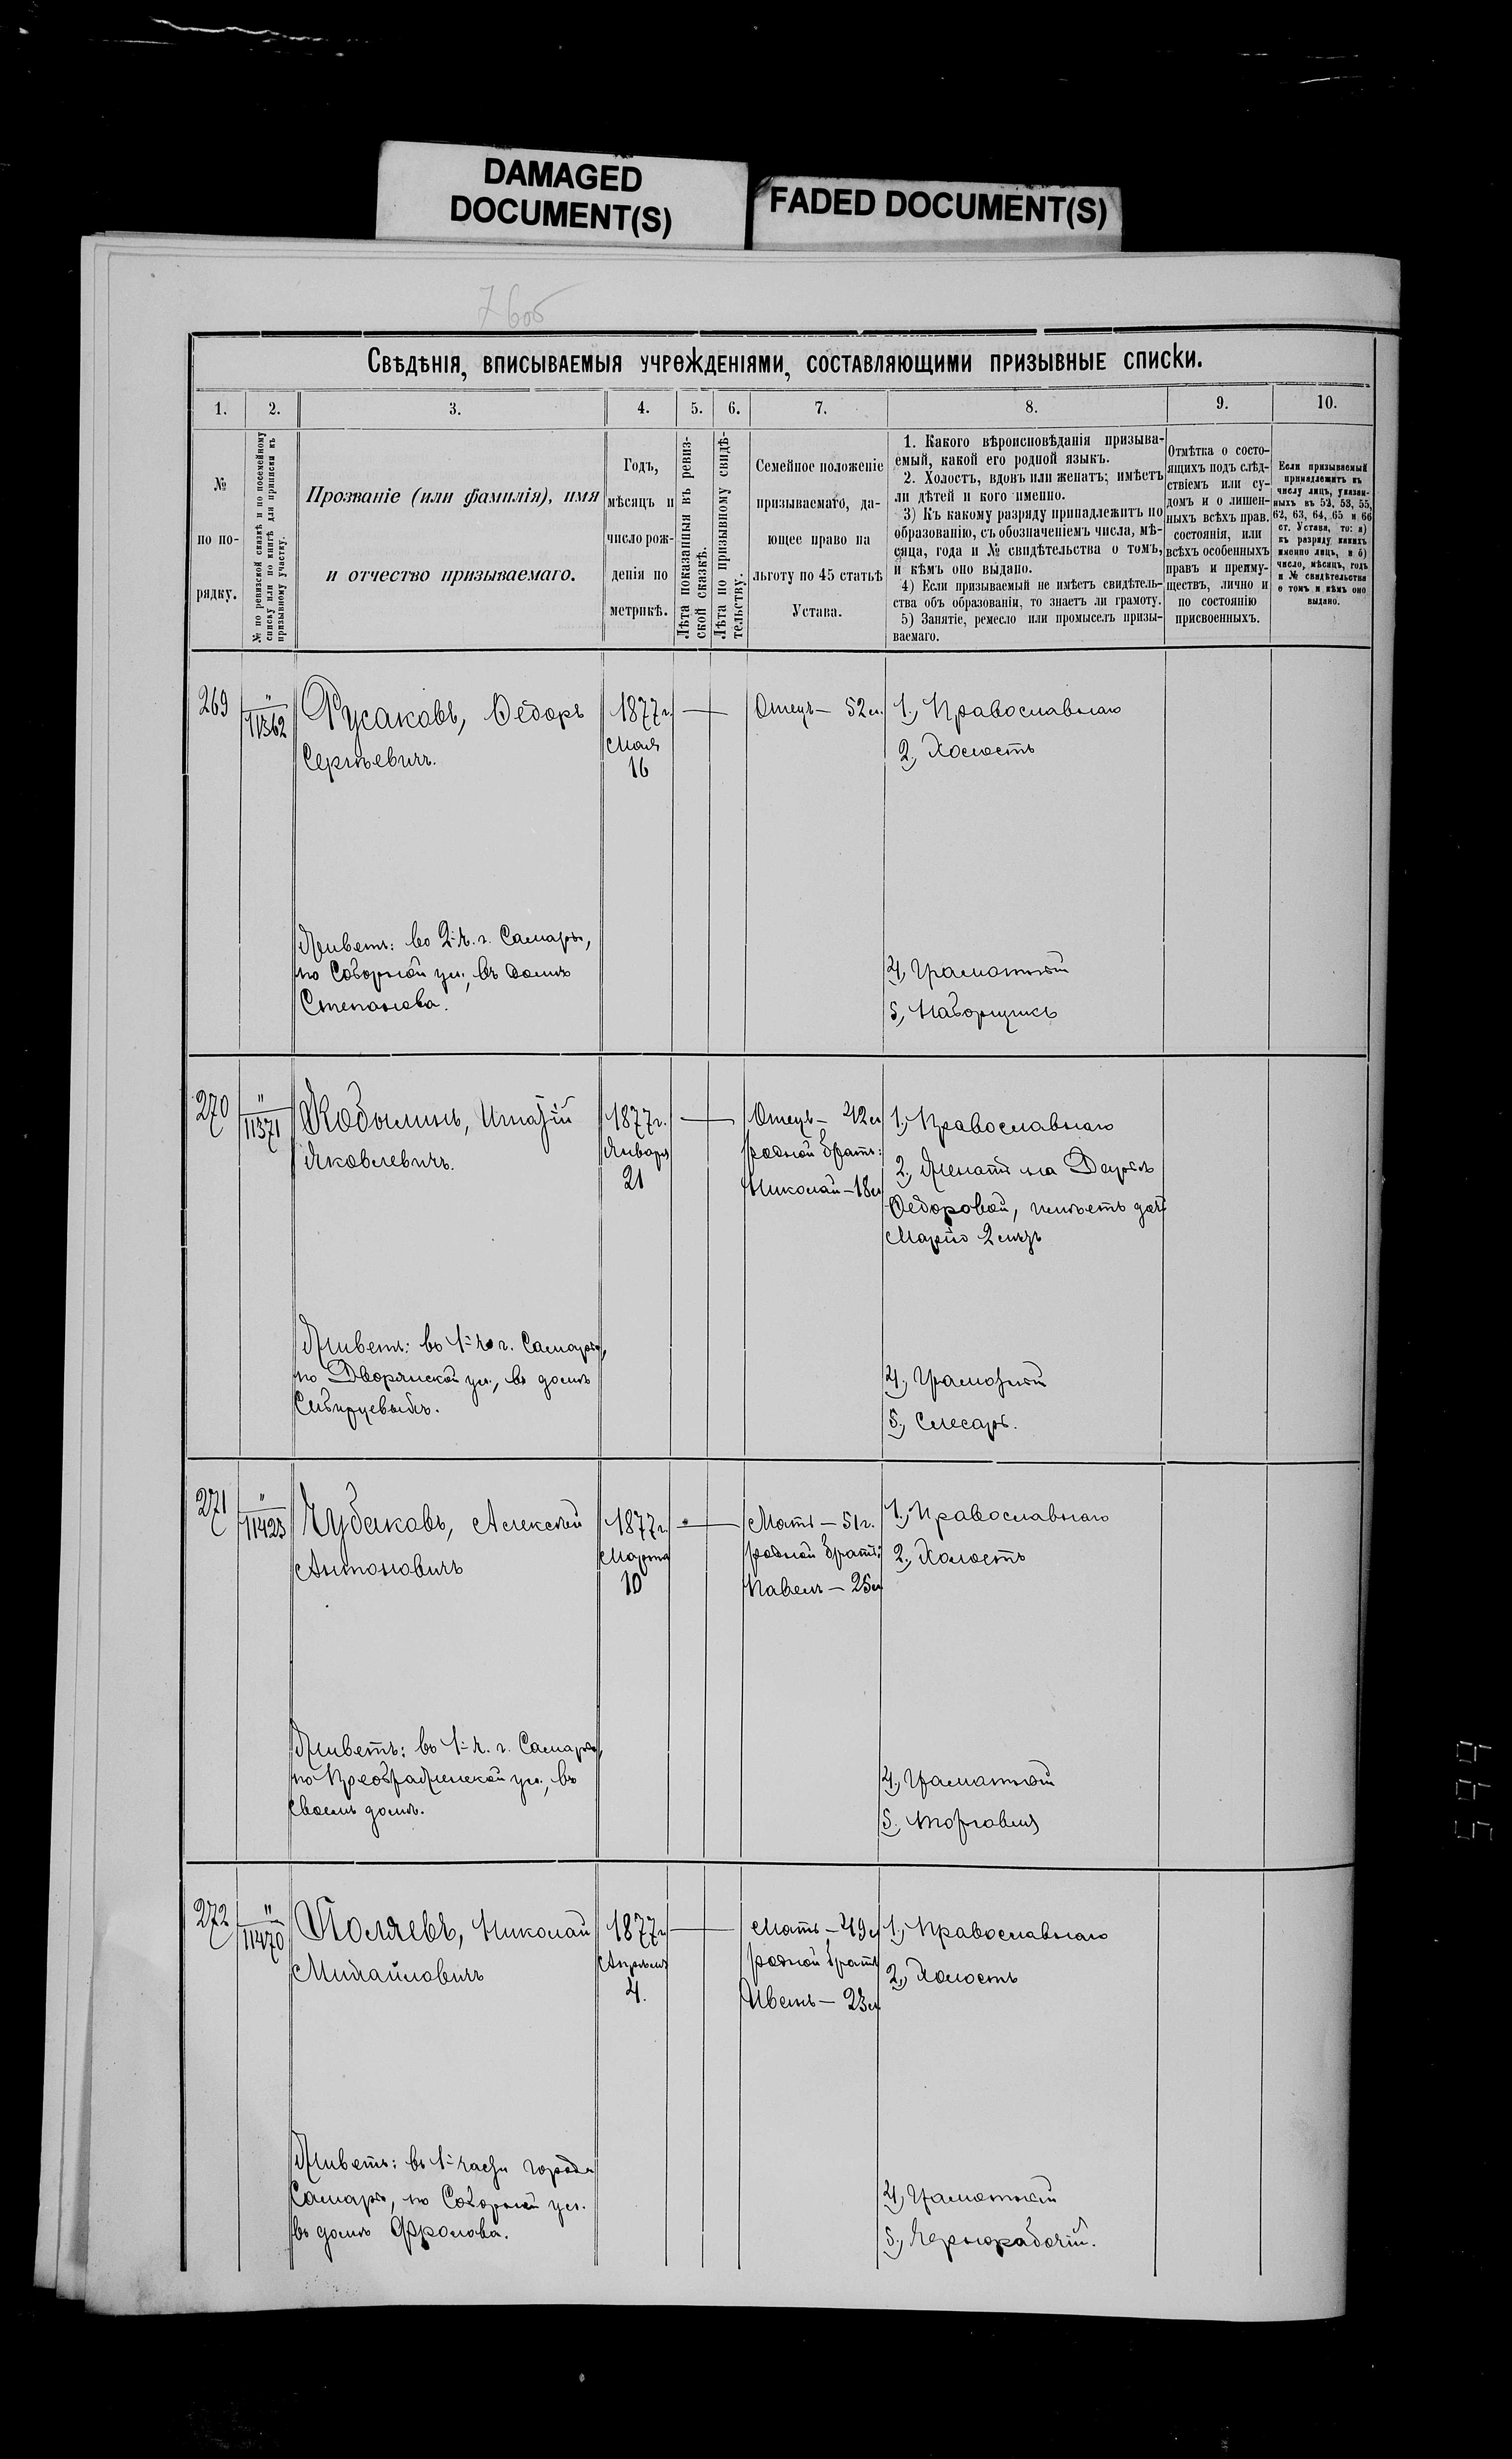 DAMAGED
DOCUMENT(S)
FADED DOCUMENT(S)
760б
Свѣдѣнія, вписываемыя учрежденіями, составляющими призывные списки.
1. 2. 3. 4. 5. 6. 7. 8. 9. 10.
№
по по-
рядку.
№ по ревизской сказкѣ и по посемейному
списку или по книгѣ для приписки къ
призывному участку.
Прозваніе (или фамилія), имя
и отчество призываемаго.
Годъ,
мѣсяцъ и
число рож-
денія по
метрикѣ.
Лѣта показанныя въ ревиз-
ской сказкѣ.
Лѣта по призывному свидѣ-
тельству.
Семейное положеніе
призываемаго, да-
ющее право на
льготу по 45 статьѣ
Устава.
1. Какого вѣроисповѣданія призыва-
емый, какой его родной языкъ.
2. Холостъ, вдовъ или женатъ; имѣетъ
ли дѣтей и кого именно.
3) Къ какому разряду принадлежитъ по
образованію, съ обозначеніемъ числа, мѣ-
сяца, года и № свидѣтельства о томъ,
и кѣмъ оно выдано.
4) Если призываемый не имѣетъ свидѣтель-
ства объ образованіи, то знаетъ ли грамоту.
5) Занятіе, ремесло или промыселъ призы-
ваемаго.
Отмѣтка о состо-
ящихъ подъ слѣд-
ствіемъ или су-
домъ и о лишен-
ныхъ всѣхъ прав.
состоянія, или
всѣхъ особенныхъ
правъ и преиму-
ществъ, лично и
по состоянію
присвоенныхъ.
Если призываемый
принадлежитъ къ
числу лицъ, указан-
ныхъ въ 52, 53, 55,
62, 63, 64, 65 и 66
ст. Устава, то: а)
къ разряду какихъ
именно лицъ, и б)
число, мѣсяцъ, годъ
и № свидѣтельства
о томъ и кѣмъ оно
выдано.
269
"
11362
Русаковъ, Ѳедоръ
Сергѣевичъ.
1877 г.
Мая
16
Отецъ — 52 л.
1., Православнаго
2., Холостъ
Живетъ: во 2-й ч. г. Самары,
по Соборной ул., въ домѣ
Степанова.
4., Грамотный
5., Наборщикъ
270
"
11371
Кобылинъ, Игнатій
Яковлевичъ.
1877 г.
Января
21
Отецъ — 42 л
родной братъ:
Николай — 18 л
1., Православнаго
2., Женатъ на Дарьѣ
Ѳедоровой, имѣетъ дочь
Марію 2 мѣс.
Живетъ: въ 1-й ч. г. Самары,
по Дворянской ул., въ домѣ
4., Грамотный
5., Слесарь.
271
"
11423
Чубаковъ, Алексѣй
Антоновичъ
1877 г.
Марта
10
Мать — 51 г.
родной братъ:
Павелъ — 25 л
1., Православнаго
2., Холостъ
Живетъ: въ 1-й ч. г. Самары,
по Преображенской ул., въ
своемъ домѣ.
4., Грамотный
5., Торговля
272
"
11470
Поляевъ, Николай
Михайловичъ
1877 г.
Апрѣля
4.
Мать — 49 л
родной братъ
Иванъ — 23 л
1., Православнаго
2., Холостъ
Живетъ: въ 1-й части города
Самары, по Соборной ул.
въ домѣ Фролова.
4., Грамотный
5., Чернорабочій.
599